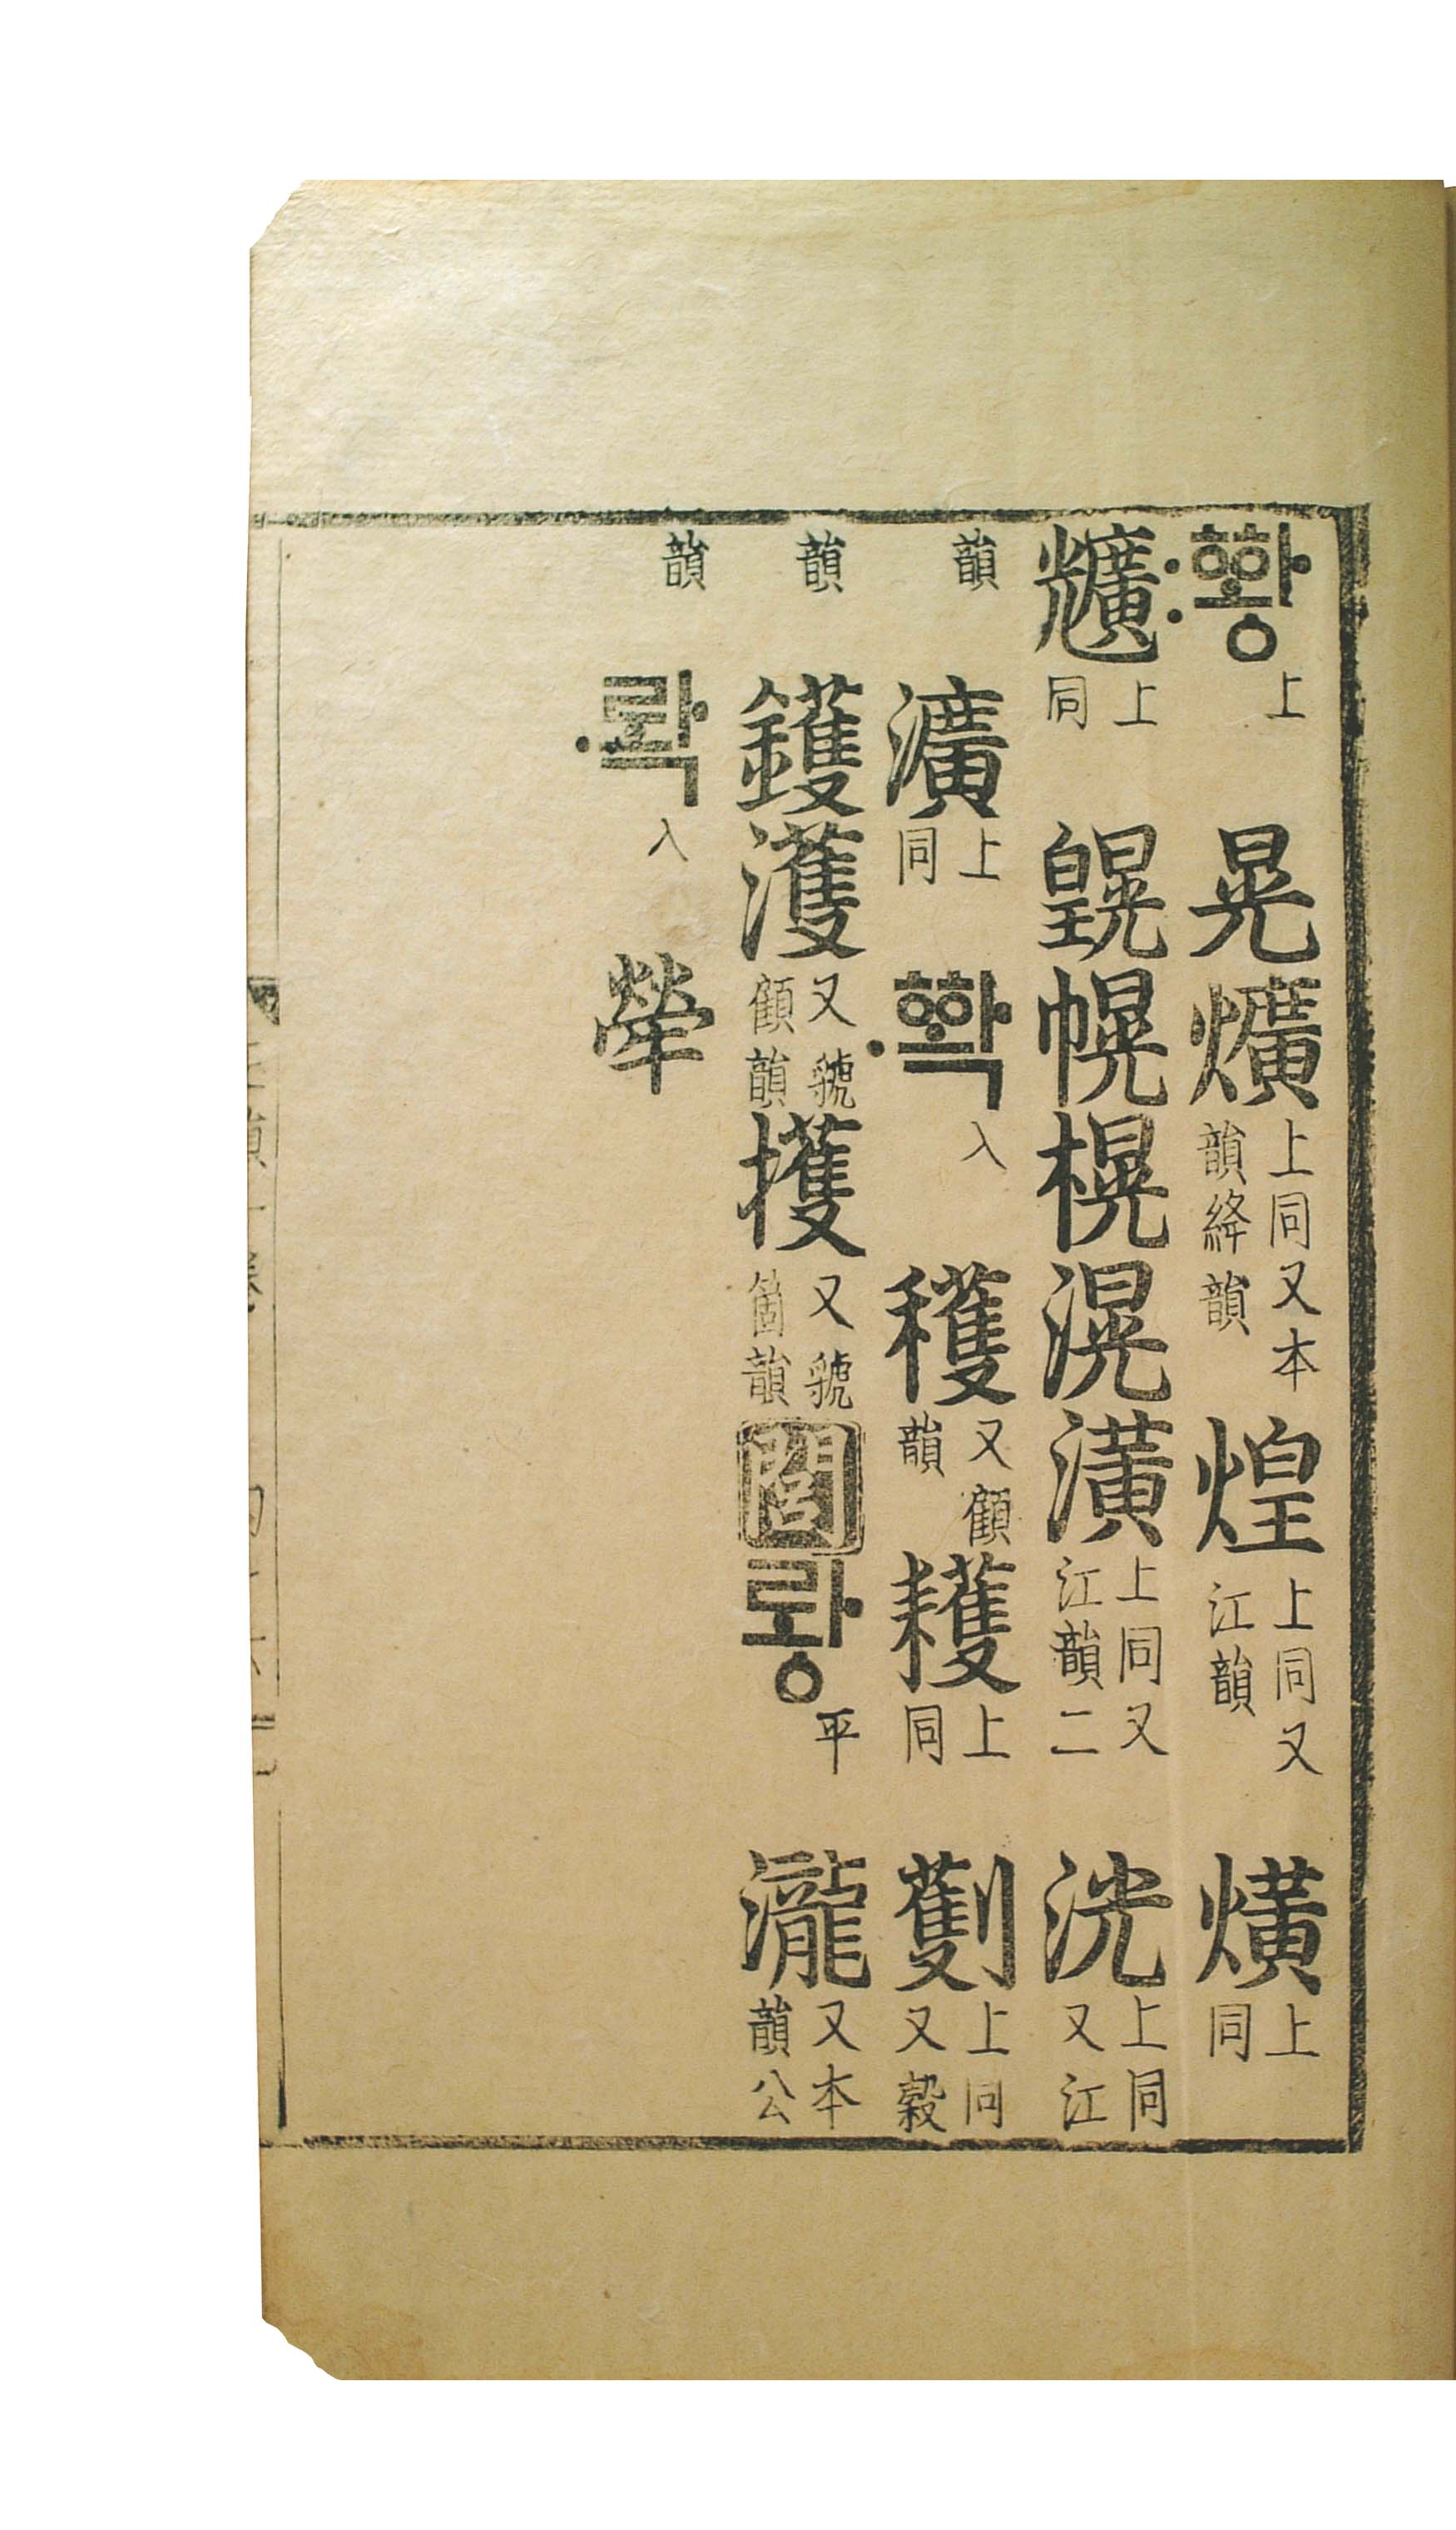 〯ᅘᅪᇰ 上 晃爌上同又本韻絳韻煌上同又江韻熿上同
上同 幌榥滉潢上同又江韻二洸上同又江
韻瀇上同〮ᅘᅪᆨ 入 穫又顧韻 上同劐上同又縠
韻鑊濩又虢顧韻擭又虢箇韻閭롸ᇰ 平 瀧又本韻公
韻〮롹 入 犖